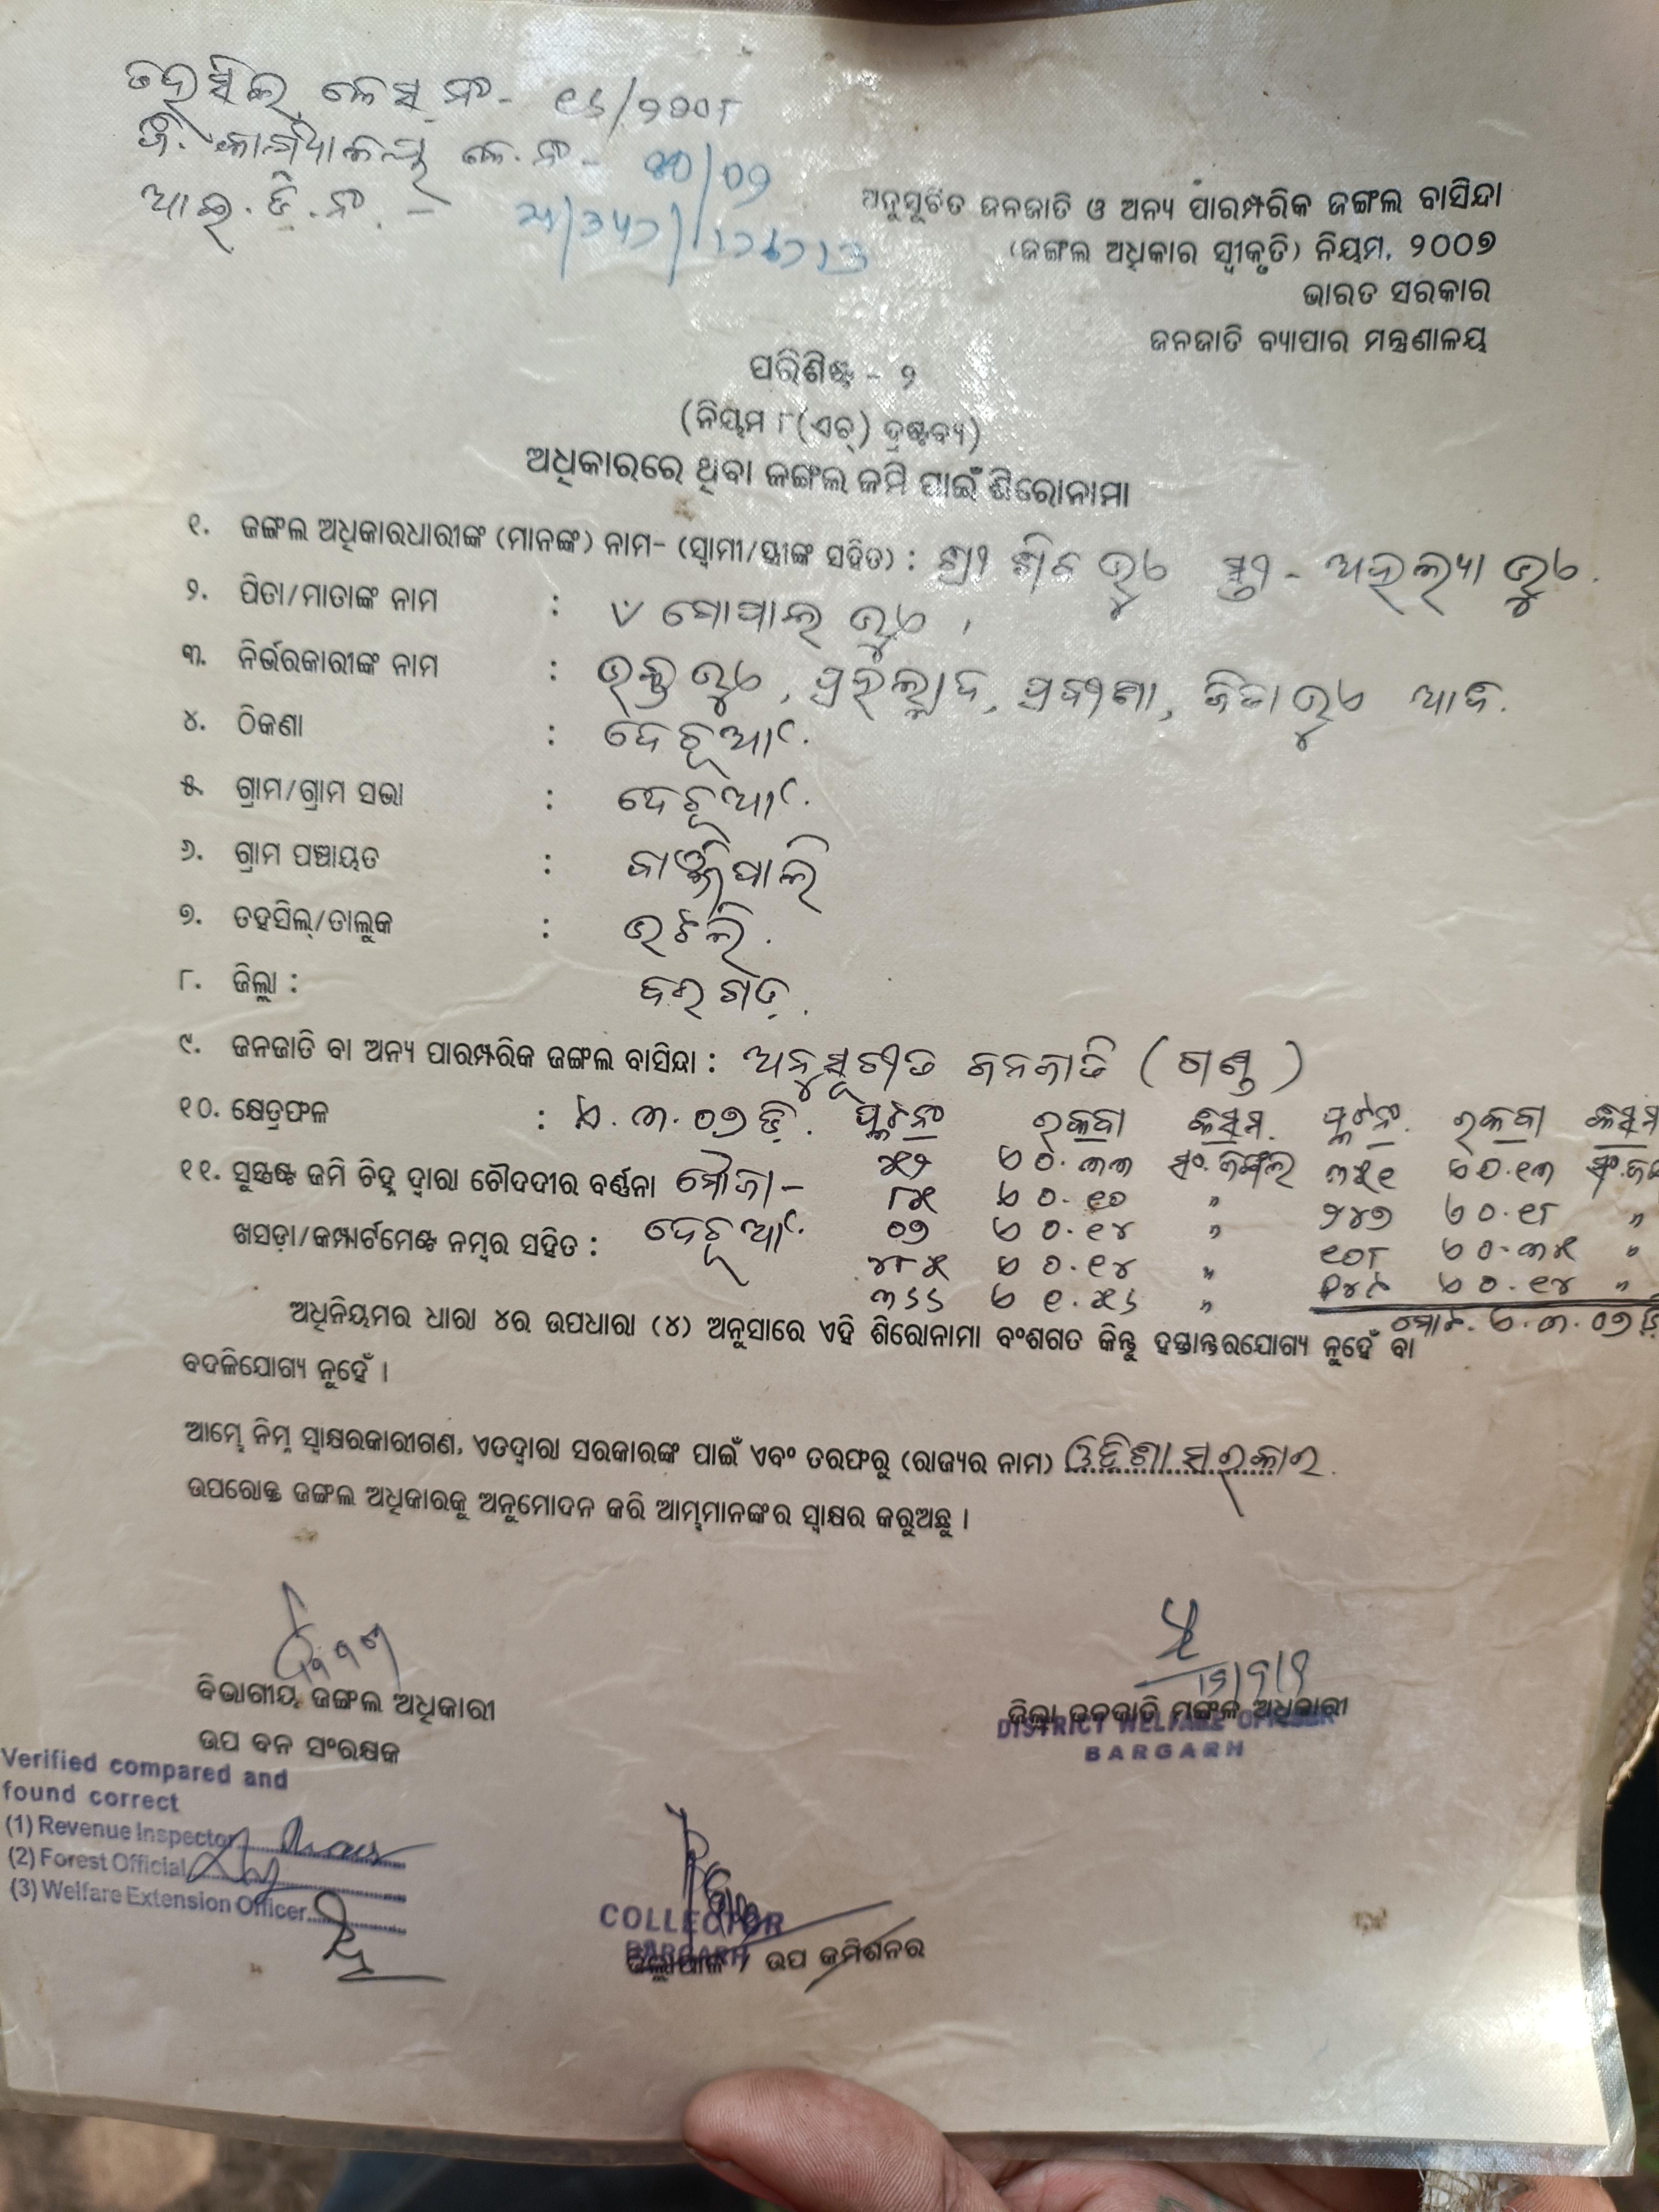 ତହସିଲ କେସ ନଂ- ୧୬/୨୦୦୮
ଜି. କାର୍ଯ୍ୟାଳୟ କେ. ନଂ-
ଆଇ.ଡି.ନଂ. -
ଅନୁସୂଚିତ ଜନଜାତି ଓ ଅନ୍ୟ ପାରମ୍ପରିକ ଜଙ୍ଗଲ ବାସିନ୍ଦା
(ଜଙ୍ଗଲ ଅଧିକାର ସ୍ୱୀକୃତି) ନିୟମ, ୨୦୦୭
ଭାରତ ସରକାର
ଜନଜାତି ବ୍ୟାପାର ମନ୍ତ୍ରଣାଳୟ
ପରିଶିଷ୍ଟ - ୨
(ନିୟମ ୮(ଏଚ୍) ଦ୍ରଷ୍ଟବ୍ୟ)
ଅଧିକାରରେ ଥିବା ଜଙ୍ଗଲ ଜମି ପାଇଁ ଶିରୋନାମା
୧. ଜଙ୍ଗଲ ଅଧିକାରଧାରୀଙ୍କ (ମାନଙ୍କ) ନାମ- (ସ୍ୱାମୀ/ସ୍ତ୍ରୀଙ୍କ ସହିତ) : ଶ୍ରୀ ଶିବ ଭୁଏ ସ୍ତ୍ରୀ - ଅହଲ୍ୟା ଭୁଏ.
୨. ପିତା/ମାତାଙ୍କ ନାମ : ଗୋପାଲ ଭୁଏ,
୩. ନିର୍ଭରକାରୀଙ୍କ ନାମ : ଭକ୍ତ ଭୁଏ, ପ୍ରହଲ୍ଲାଦ, ଭୁଏ
୪. ଠିକଣା : ଦେଚୂଆଁ.
୫. ଗ୍ରାମ/ଗ୍ରାମ ସଭା : ଦେଚୂଆଁ.
୬. ଗ୍ରାମ ପଞ୍ଚାୟତ : କାଞ୍ଜିପାଲି
୭. ତହସିଲ୍/ତାଲୁକ : ଭଟଲି.
୮. ଜିଲ୍ଲା : ବରଗଡ଼.
୯. ଜନଜାତି ବା ଅନ୍ୟ ପାରମ୍ପରିକ ଜଙ୍ଗଲ ବାସିନ୍ଦା : ଅନୁସୂଚୀତ ଜନଜାତି (ଗଣ୍ଡ)
୧୦. କ୍ଷେତ୍ରଫଳ : ଏ.୩.୦୭ ଡି. ପ୍ଲଟନଂ ରକବା କିସମ. ପ୍ଲଟନଂ. ରକବା କିସମ
୧୧. ସୁସ୍ପଷ୍ଟ ଜମି ଚିହ୍ନ ଦ୍ୱାରା ଚୌଦଦୀର ବର୍ଣ୍ଣନା ମୌଜା- ୫୨ ଏ ୦.୩୩ ସଂ.ଜଙ୍ଗଲ ୩୫୧ ଏ ୦.୧୩
୮୫ ଏ ୦.୧୦ " ୨୪୭ ଏ ୦.୧୮ "
ଖସଡ଼ା/କମ୍ପାର୍ଟମେଣ୍ଟ ନମ୍ବର ସହିତ : ଦେଚୂଆଁ. ୦୭ ଏ ୦.୧୪ " ୧୦୮ ଏ ୦.୩୫ "
୪୮୫ ଏ ୦.୧୪ " ଏ ୦.୧୪ "
୩୬୬ ଏ ୧.୫୬ " ମୋଟ. ଏ.୩.୦୭ ଡି
ଅଧିନିୟମର ଧାରା ୪ର ଉପଧାରା (୪) ଅନୁସାରେ ଏହି ଶିରୋନାମା ବଂଶଗତ କିନ୍ତୁ ହସ୍ତାନ୍ତରଯୋଗ୍ୟ ନୁହେଁ ବା
ବଦଳିଯୋଗ୍ୟ ନୁହେଁ ।
ଆମ୍ଭେ ନିମ୍ନ ସ୍ୱାକ୍ଷରକାରୀଗଣ, ଏତଦ୍ୱାରା ସରକାରଙ୍କ ପାଇଁ ଏବଂ ତରଫରୁ (ରାଜ୍ୟର ନାମ) ଓଡିଶା ସରକାର.
ଉପରୋକ୍ତ ଜଙ୍ଗଲ ଅଧିକାରକୁ ଅନୁମୋଦନ କରି ଆମ୍ଭମାନଙ୍କର ସ୍ୱାକ୍ଷର କରୁଅଛୁ ।
ବିଭାଗୀୟ ଜଙ୍ଗଲ ଅଧିକାରୀ
ଉପ ବନ ସଂରକ୍ଷକ
ଜିଲ୍ଲା ଜନଜାତି ମଙ୍ଗଳ ଅଧିକାରୀ
DISTRICT WELFARE OFFICER
BARGARH
Verified compared and
found correct
(1) Revenue Inspector
(2) Forest Official
(3) Welfare Extension Officer
COLLECTOR
BARGARH
ଜିଲ୍ଲାପାଳ / ଉପ କମିଶନର